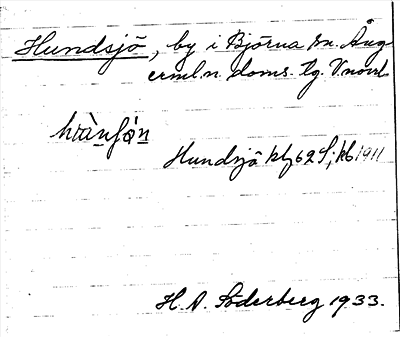 Hundsjö, by i Björna sn. Ång-
erml. n. doms. tg. V.norrl.
Hundsjö kby 62 S; kb 1911
H. A. Söderberg 1933.